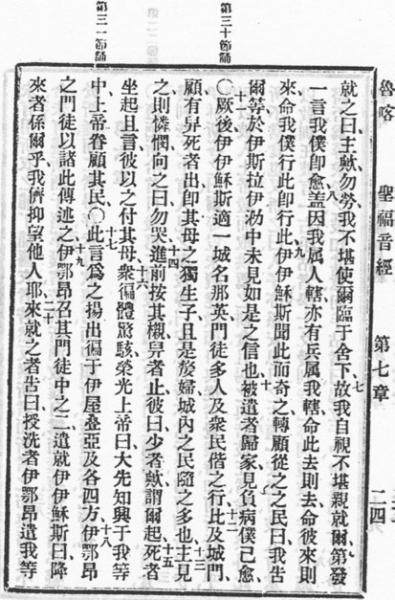 魯喀 聖福音經 第七章 二四
第三十節誦
第三一節誦
就之曰主歟勿勞我不堪使爾臨于舍下故七我自視不堪親就爾第發
一言我僕即愈八蓋因我属人轄亦有兵属我轄命此去則去命彼來則
來命我僕行此即行此九伊伊穌斯聞此而奇之轉顧從之之民曰我告
爾等於伊斯拉伊泐中未見如是之信也十被遣者歸家見負病僕已愈
〇十一厥後伊伊穌斯適一城名那英門徒多人及衆民偕之行十二比及城門
顧有舁死者出即其母之獨生子且是嫠婦城內之民隨之多也十三主見
之則憐憫向之曰勿哭十四進前按其櫬舁者止彼曰少者歟謂爾起十五死者
坐起且言彼以之付其母十六衆徧體驚駭榮光上帝曰大先知興于我等
中上帝眷顧其民〇十七此言爲之揚出徧于伊屋疊亞及各四方十八伊鄂昂
之門徒以諸此傳述之十九伊鄂昂召其門徒中之二遣就伊伊穌斯曰降
來者係爾乎我儕抑望他人耶二十來就之者告曰授洗者伊鄂昂遣我等